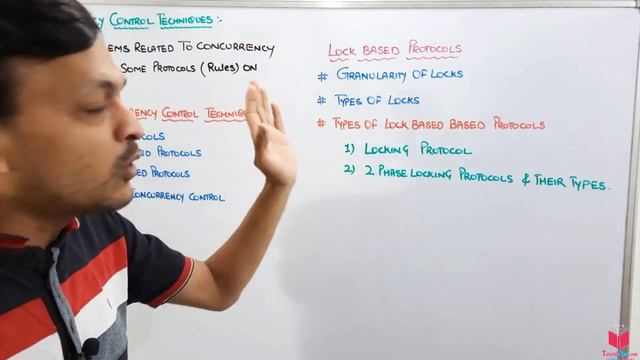 CY CONTROL TECHNIQUES :-
EMS RELATED TO CONCURRENCY
SOME PROTOCOLS (RULES) ON
RRENCY CONTROL TECHNIQU
OCOLS
ED PROTOCOLS
ED PROTOCOLS
CONCURRENCY CONTROL
LOCK BASED PROTOCOLS
# GRANULARITY OF LOCKS
# TYPES OF LOCKS
# TYPES OF LOCK BASED BASED PROTOCOLS
1) LOCKING PROTOCOL
2) 2 PHASE LOCKING PROTOCOLS & THEIR TYPES.